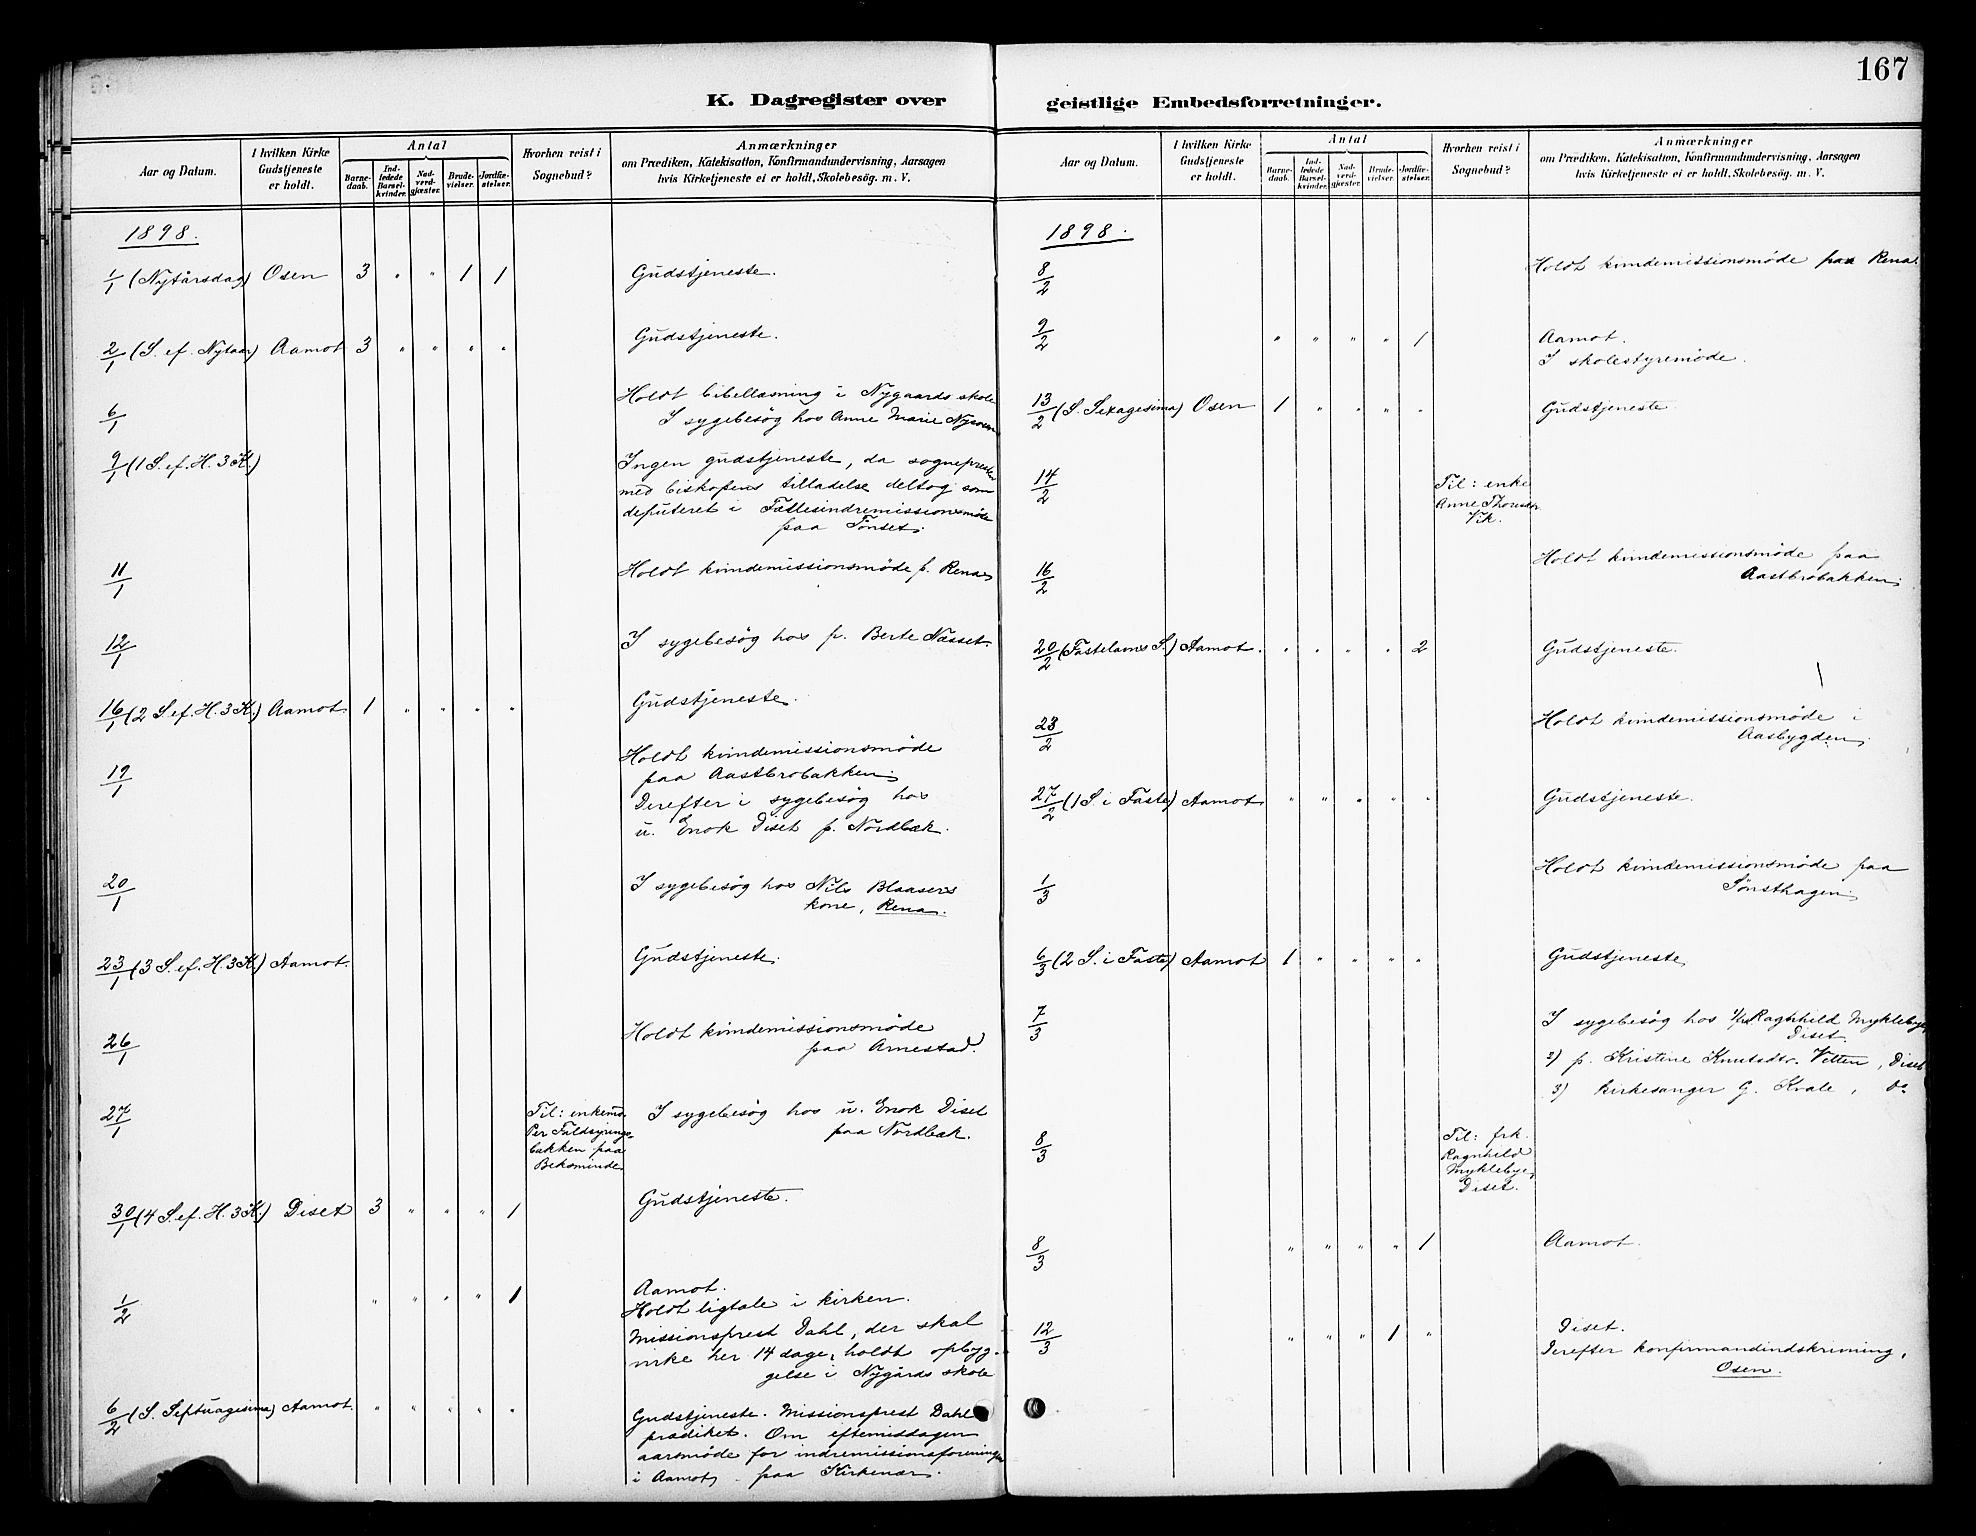 167
K. Dagregister over geistlige Embedsforretninger.
Aar og Datum.
I hvilken Kirke Gudstjeneste er holdt.
Antal
Barnedaab.
Indledede Barselkvinder.
Nadverdgjester.
Brudevielser.
Jordfæstelser.
Hvorhen reist i Sognebud?
Anmærkninger
om Prædiken, Katekisation, Konfirmandundervisning, Aarsagen
hvis Kirketjeneste ei er holdt, Skolebesøg. m. V.
1898.
1/1 (Nytårsdag) Osen 3 " " 1 1 Gudstjeneste.
2/1 (S. ef. Nytaar) Aamot 3 " " " " Gudstjeneste.
6/1 Holdt bibellæsning i Nygaards skole
I sygebesøg hos Anne Marie Nysveen
9/1 (1 S. ef. H. 3 K.) Ingen gudstjeneste, da sognepresten
med biskopens tilladelse deltog som
deputeret i Fællesindremissionsmøde
paa Tønset.
11/1 Holdt kvindemissionsmøde p. Rena
12/1 I sygebesøg hos p. Berte Næsset.
16/1 (2 S. ef. H. 3 K.) Aamot. 1 " " " " Gudstjeneste.
19/1 Holdt kvindemissionsmøde
paa Aastbrobakken.
Derefter i sygebesøg hos
u. Enok Diset p. Nordbæk.
20/1 I sygebesøg hos Nils Blaasens
kone, Rena.
23/1 (3 S. ef. H. 3 K.) Aamot. Gudstjeneste.
26/1 Holdt kvindemissionsmøde
paa Arnestad.
27/1 Til: enkemd. I sygebesøg hos u. Enok Diset
Per paa Nordbæk.
bakken paa
30/1 (4 S. ef. H. 3 K.) Diset 3 " " " 1 Gudstjeneste.
1/2 " " " " 1 Aamot.
Holdt ligtale i kirken.
Missionsprest Dahl, der skal
virke her 14 dage, holdt opbyg-
gelse i Nygårds skole
6/2 (S. Septuagesima) Aamot. " " " " " Gudstjeneste. Missionsprest Dahl
prædiket. Om eftemiddagen
aarsmøde for indremissionsforeningen
i Aamot, paa Kirkenær.
Aar og Datum.
I hvilken Kirke Gudstjeneste er holdt.
Antal
Barnedaab.
Indledede Barselkvinder.
Nadverdgjester.
Brudevielser.
Jordfæstelser.
Hvorhen reist i Sognebud?
Anmærkninger
om Prædiken, Katekisation, Konfirmandundervisning, Aarsagen
hvis Kirketjeneste ei er holdt, Skolebesøg. m. V.
1898.
8/2 Holdt kvindemissionsmøde paa Rena.
9/2 " " " " 1 Aamot.
I skolestyremøde.
13/2 (S. Sexagesima) Osen 1 " " " " Gudstjeneste.
14/2 Til: enke
Anne Thorsdtr
Vik.
16/2 Holdt kvindemissionsmøde paa
Aastbrobakken.
20/2 (Fastelavns S.) Aamot. " " " " 2 Gudstjeneste.
23/2 Holdt kvindemissionsmøde i
Aasbygden.
27/2 (1 S. i Faste) Aamot " " " " " Gudstjeneste.
1/3 Holdt kvindemissionsmøde paa
Sønsthagen.
6/3 (2 S. i Faste) Aamot 1 " " " " Gudstjeneste
7/3 I sygebesøg hos 1/ Ragnhild Myklebye,
Diset.
2) p. Kristine Knutsdtr. Vetten, Diset
3) Kirkesanger G. Kvale, do
8/3 Til: frk.
Ragnhild
Myklebye,
Diset.
8/3 " " " " 1 Aamot.
12/3 " " " 1 " Diset.
Derefter konfirmandindskrivning,
Osen.